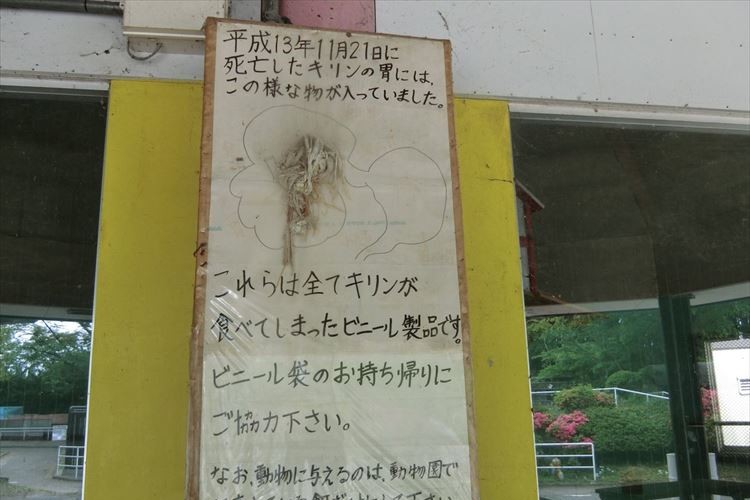 平成13年11月21日に
死亡したキリンの胃には、
この様な物が入っていました。
これらは全てキリンが
食べてしまったビニール製品です。
ビニール袋のお持ち帰りに
ご協力下さい。
なお、動物に与えるのは、動物園で